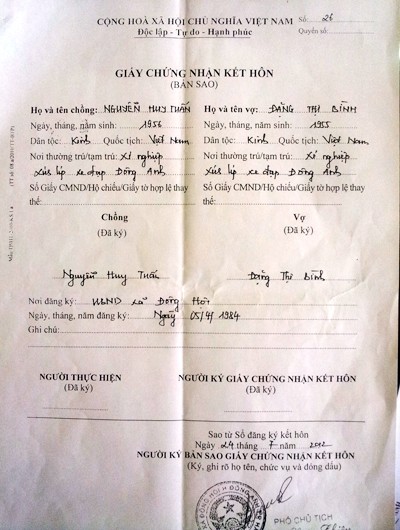 CỘNG HOÀ XÃ HỘI CHỦ NGHĨA VIỆT NAM
Độc lập - Tự do - Hạnh phúc
Số: 26
Quyển số:
GIẤY CHỨNG NHẬN KẾT HÔN
(BẢN SAO)
Họ và tên chồng: NGUYỄN HUY TUẤN
Ngày, tháng, năm sinh: 1956
Dân tộc: Kinh Quốc tịch: Việt Nam
Nơi thường trú/tạm trú: Xí nghiệp
xúc líp xe đạp Đông Anh
Số Giấy CMND/Hộ chiếu/Giấy tờ hợp lệ thay
thế:
Họ và tên vợ: ĐẶNG THỊ BÌNH
Ngày, tháng, năm sinh: 1955
Dân tộc: Kinh Quốc tịch: Việt Nam
Nơi thường trú/tạm trú: Xí nghiệp
xúc líp xe đạp Đông Anh
Số Giấy CMND/Hộ chiếu/Giấy tờ hợp lệ thay
thế:
Chồng
(Đã ký)
Nguyễn Huy Tuấn
Vợ
(Đã ký)
Đặng Thị Bình
Nơi đăng ký: UBND xã Đông Hội
Ngày, tháng, năm đăng ký: Ngày 05/4/1984
Ghi chú:
NGƯỜI THỰC HIỆN
(Đã ký)
NGƯỜI KÝ GIẤY CHỨNG NHẬN KẾT HÔN
(Đã ký)
Sao từ Sổ đăng ký kết hôn
Ngày 24 tháng 7 năm 2012
NGƯỜI KÝ BẢN SAO GIẤY CHỨNG NHẬN KẾT HÔN
(Ký, ghi rõ họ tên, chức vụ và đóng dấu)
PHÓ CHỦ TỊCH